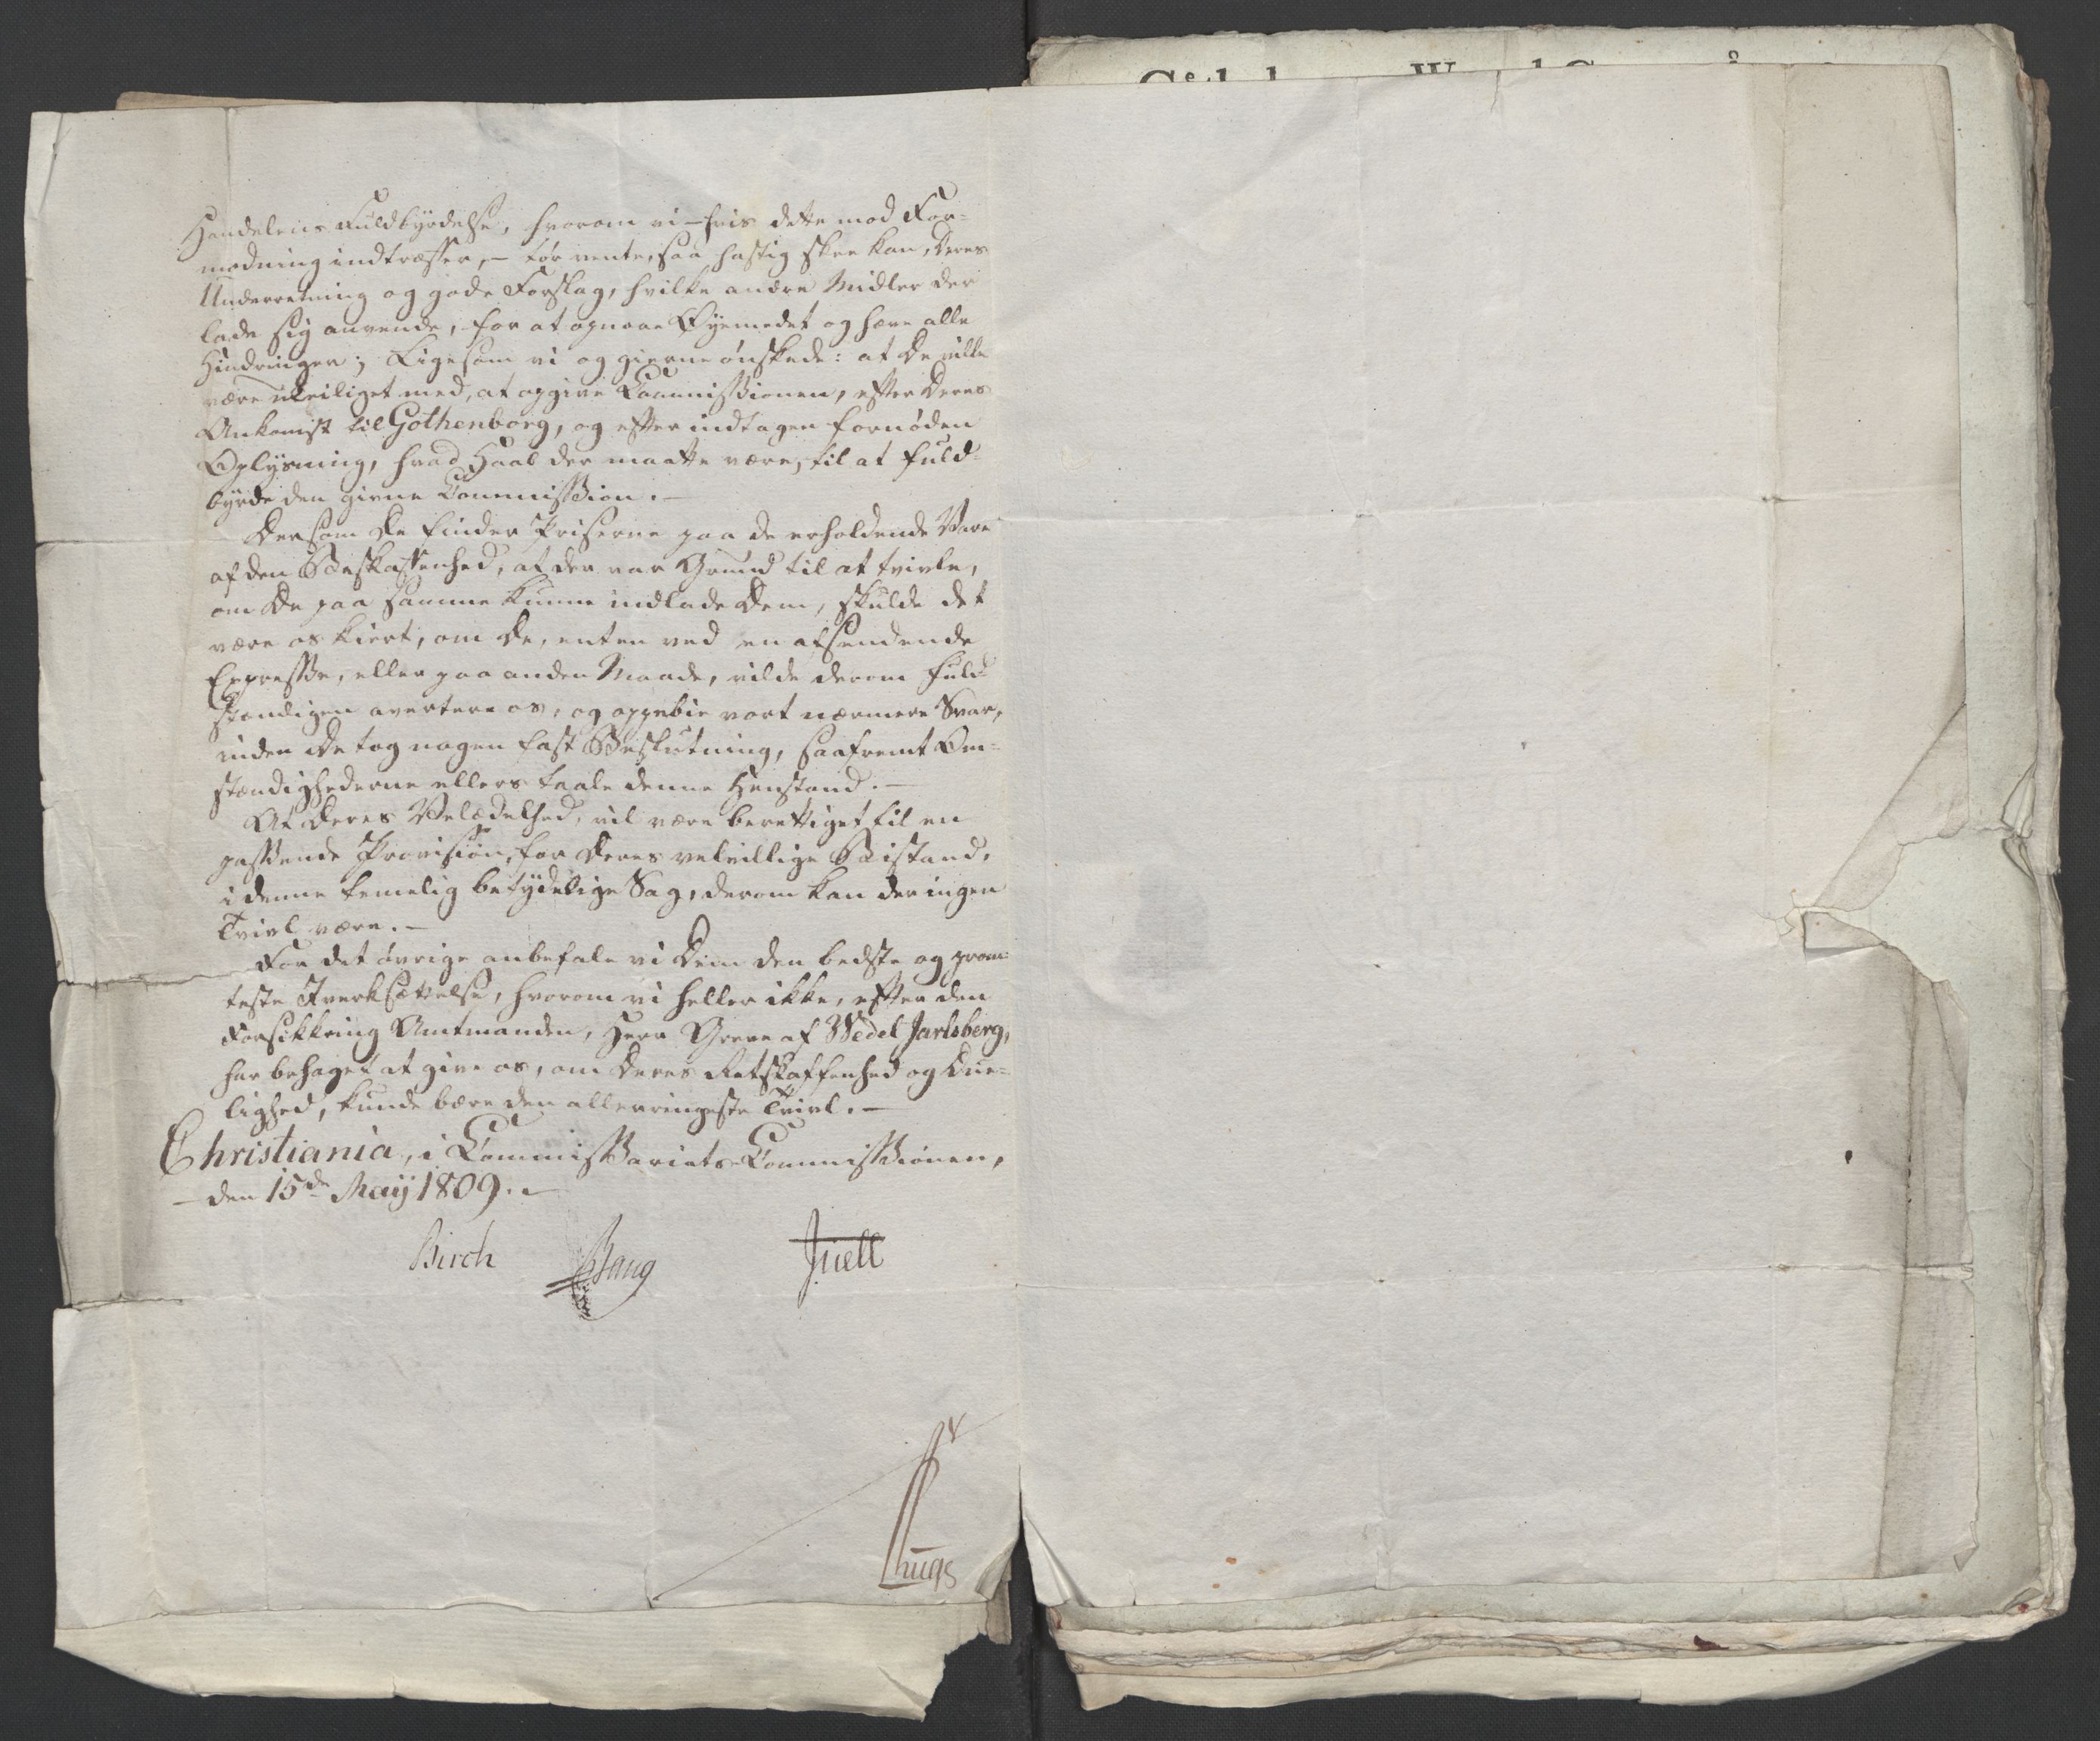 Handelens Fuldbyrdelse, hvorom vi – hvis dette mod For-
modning indtræffer, – tør vente, saa hastig skee kan, Deres
Underretning og gode Forslag, hvilke andre Midler der
lade sig anvende, for at opnaae Øyemedet og hæve alle
Hindringer; Ligesom vi og gierne ønskede: at De ville
være uleiliget med, at opgive Commissionen, efter Deres
Ankomst til Gothenborg, og efter indtagen fornøden
Oplysning, hvad Haab der maatte være, til at fuld-
byrde den givne Commission. –
Dersom De finder Priserne paa de erholdende Vare
af den Beskaffenhed, at der var Grund til at tvivle,
om De paa samme kunne indlade Dem, skulde det
være os kiert, om De, enten ved en afsendende
Expresse, eller paa anden Maade, vilde derom fuld-
stændigen avertere os, og oppebie vort nærmere Svar,
inden De tog nogen fast Beslutning, saafremt Om-
stændighederne ellers taale denne Henstand. –
At Deres Velædelhed, vil være berettiget til en
passende Provision, for Deres velvillige Bistand,
i denne temelig betydelige Sag, derom kan der ingen
Tvivl være. –
For det øvrige anbefale vi Dem den bedste og prom-
teste Iverksættelse, hvorom vi heller ikke, efter den
Forsikkring Amtmanden, Herr Greve af Wedel Jarlsberg,
har behaget at give os, om Deres Retskaffenhed og Due-
lighed, kunde bære den allerringeste Tvivl. –
Christiania, i Commissariats-Commissionen,
– den 15de Maij 1809. –
Birch Bang Juell